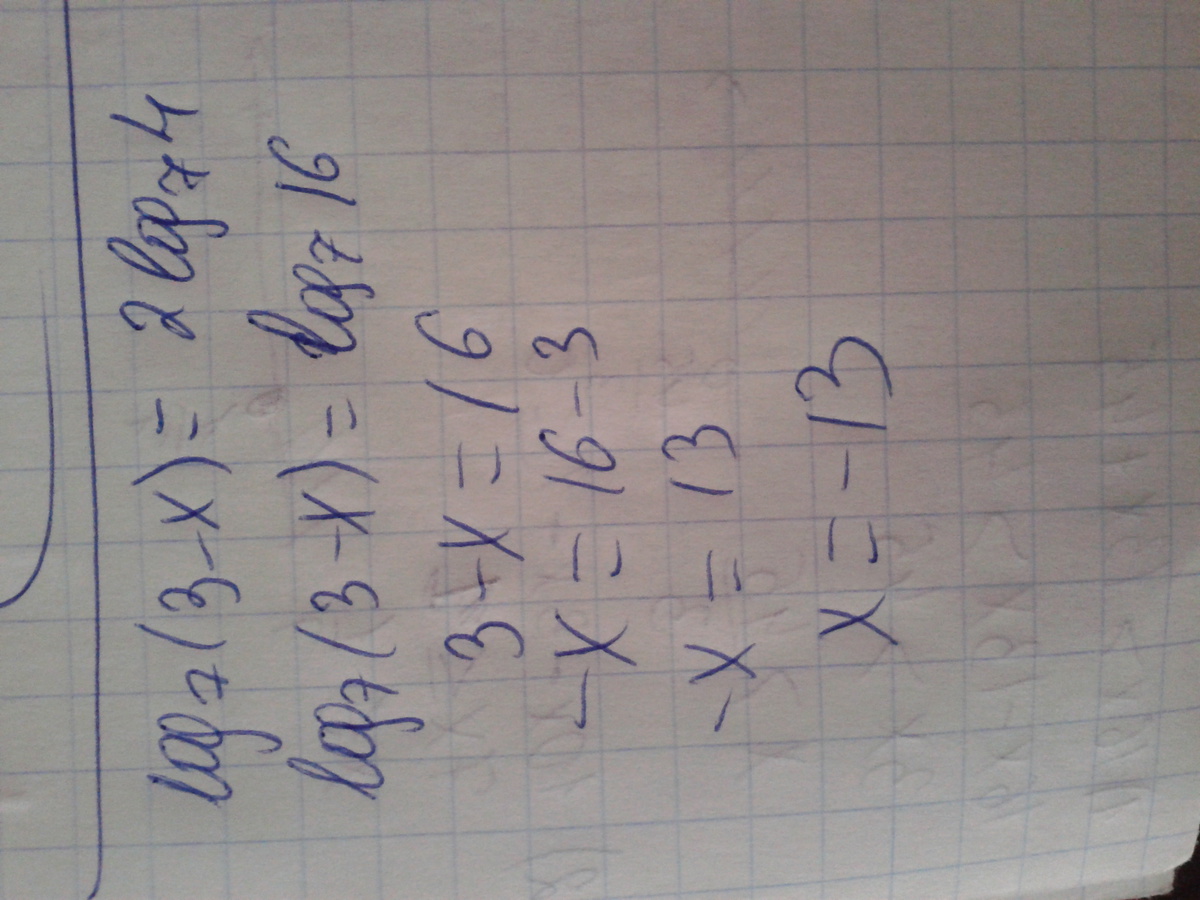 log₇(3-x) = 2 log₇4
log₇(3-x) = log₇16
3-x = 16
-x = 16-3
-x = 13
x = -13